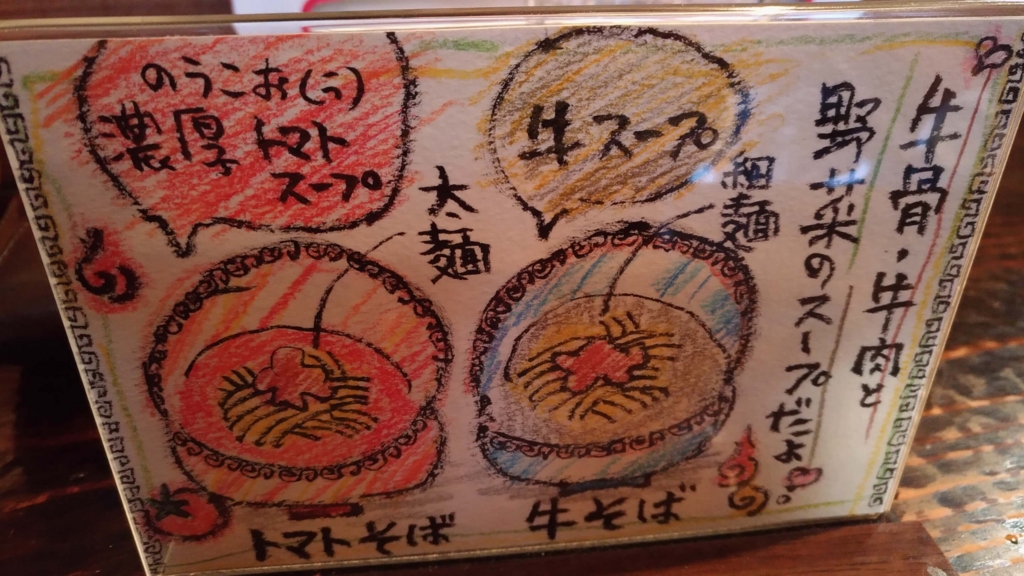 牛骨・牛肉と
野菜のスープだよ。
牛スープ
細麺
牛そば
のうこお(う)
濃厚トマト
スープ
太麺
トマトそば